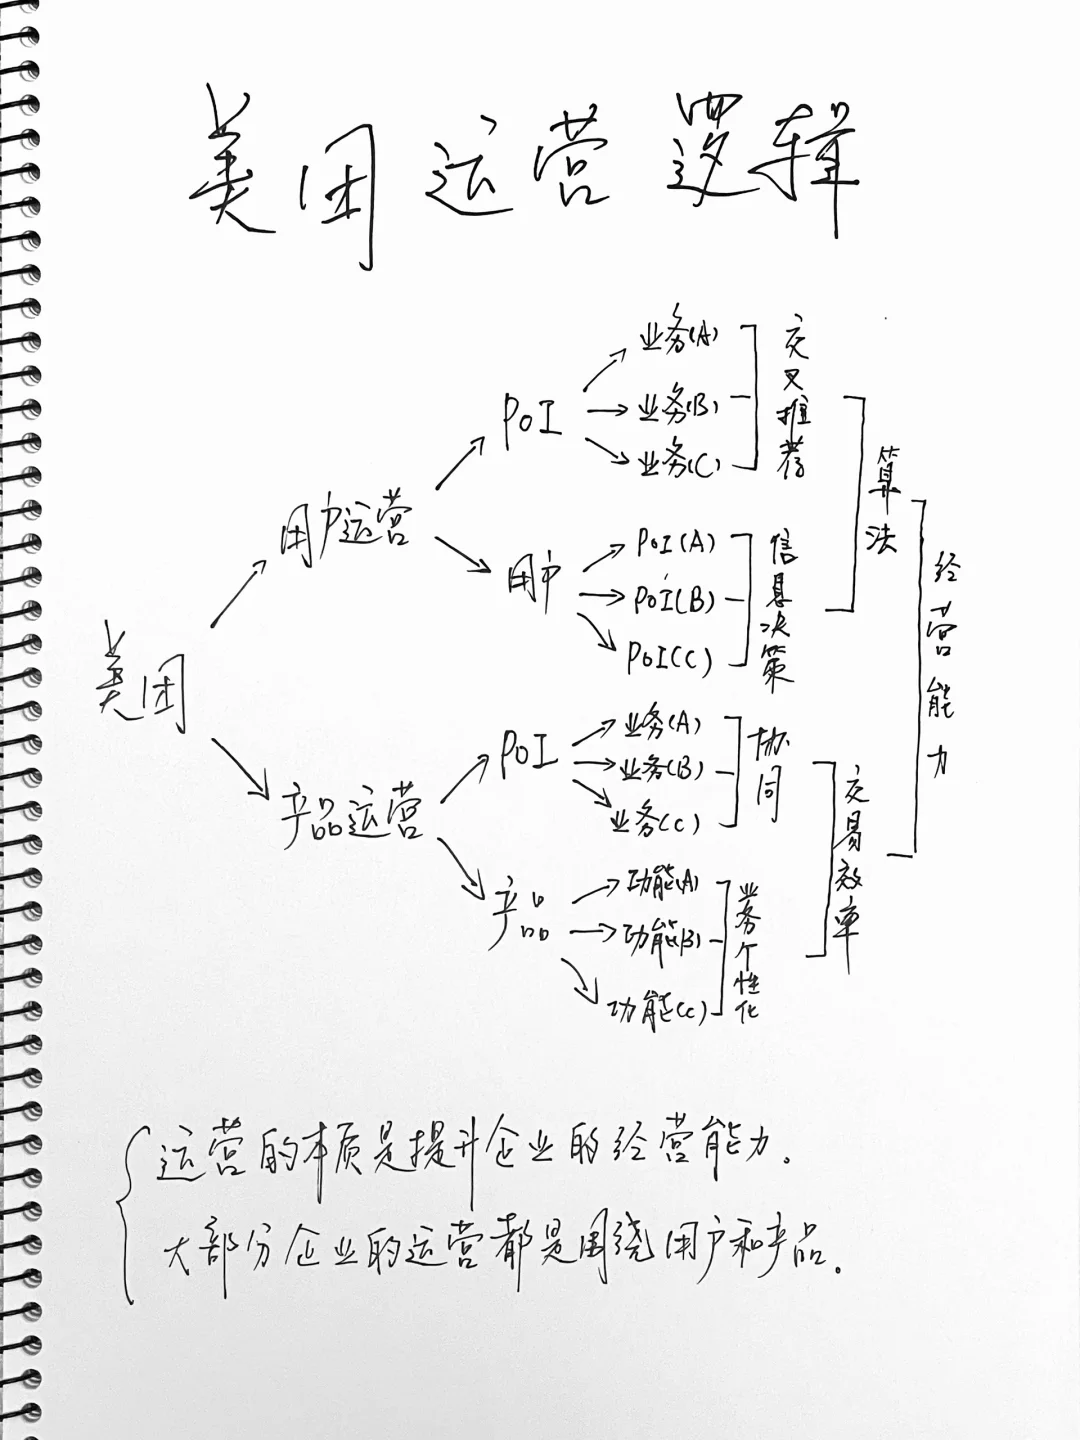 美团运营逻辑
业务(A)
业务(B)
业务(C)
交叉推荐
POI
算法
用户运营
用户
POI(A)
POI(B)
POI(C)
信息决策
经营能力
美团
POI
业务(A)
业务(B)
业务(C)
协同
交易效率
产品运营
产品
功能(A)
功能(B)
功能(C)
业务个性化
运营的本质是提升企业的经营能力。
大部分企业的运营都是围绕用户和产品。